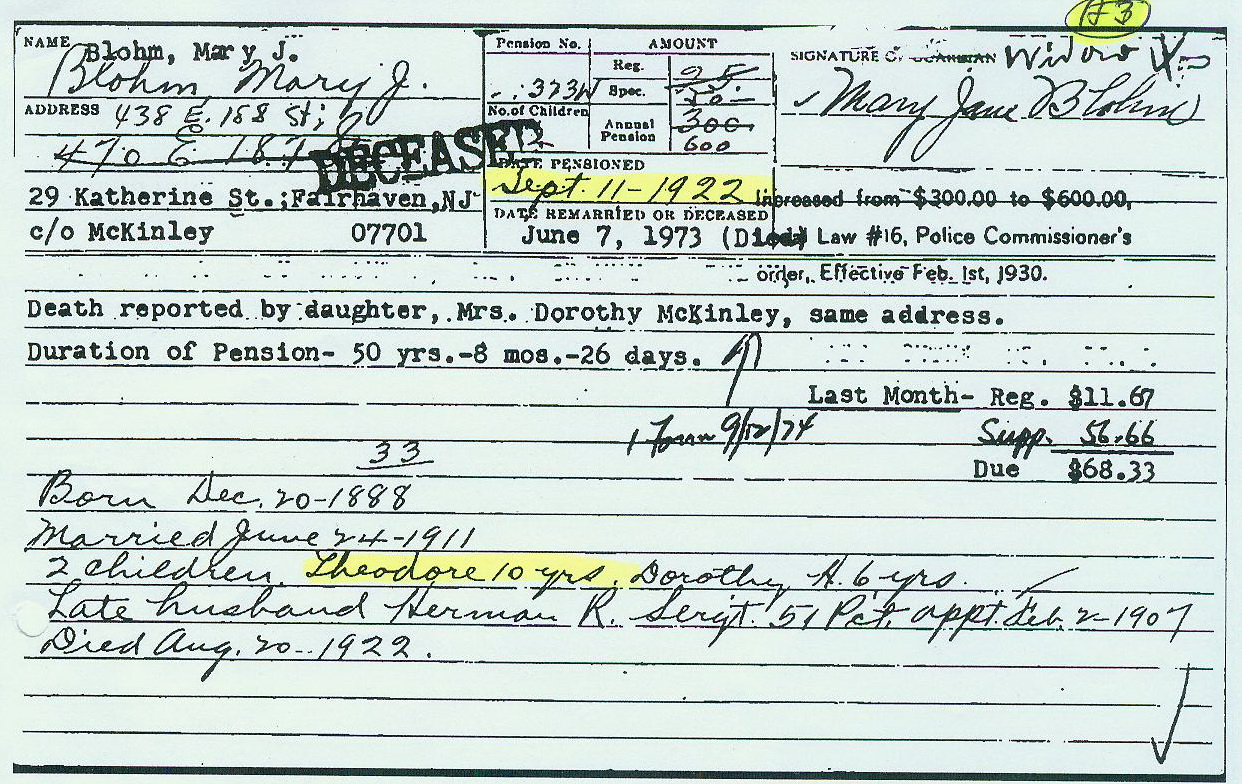 #3
NAME Blohm, Mary J.
Blohm Mary J.
ADDRESS 438 E. 188 St;
470 E 187
DECEASED
29 Katherine St.;Fairhaven,NJ
c/o McKinley 07701
Pension No.
323W
No. of Children
2
AMOUNT
Reg. 25
Spec. 50.-
Annual Pension 300
600
DATE PENSIONED
Sept. 11-1922
DATE REMARRIED OR DECEASED
June 7, 1973 (Died)
SIGNATURE OF GUARDIAN Widow
Mary Jane Blohm
Increased from $300.00 to $600.00,
Law #16, Police Commissioner's
order, Effective Feb. 1st, 1930.
Death reported by daughter, Mrs. Dorothy McKinley, same address.
Duration of Pension- 50 yrs.-8 mos.-26 days.
Last Month- Reg. $11.67
1 Form 9/12/74
Supp. 56.66
Due $68.33
33
Born Dec. 20-1888
Married June 24-1911
2 children. Theodore 10 yrs. Dorothy A. 6 yrs.
Late husband Herman R. Sergt. 51 Pct. appt. Feb. 2-1907
Died Aug. 20-1922.